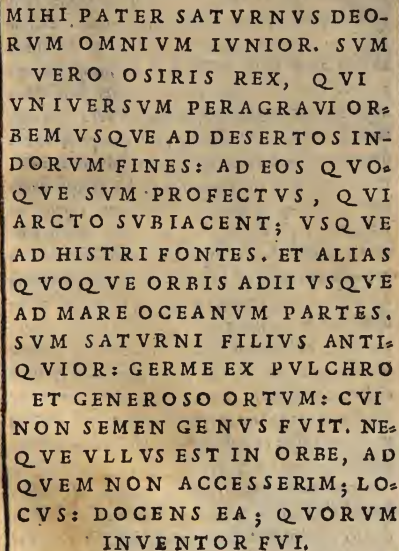 MIHI PATER SATVRNVS DEO-
RVM OMNIVM IVNIOR. SVM
VERO OSIRIS REX, QVI
VNIVERSVM PERAGRAVI OR=
BEM VSQVE AD DESERTOS IN-
DORVM FINES: AD EOS QVO=
QVE SVM PROFECTVS, QVI
ARCTO SVBIACENT; VSQVE
AD HISTRI FONTES. ET ALIAS
QVOQVE ORBIS ADII VSQVE
AD MARE OCEANVM PARTES.
SVM SATVRNI FILIVS ANTI=
QVIOR: GERME EX PVLCHRO
ET GENEROSO ORTVM: CVI
NON SEMEN GENVS FVIT. NE=
QVE VLLVS EST IN ORBE, AD
QVEM NON ACCESSERIM; LO=
CVS: DOCENS EA; QVORVM
INVENTOR FVI.